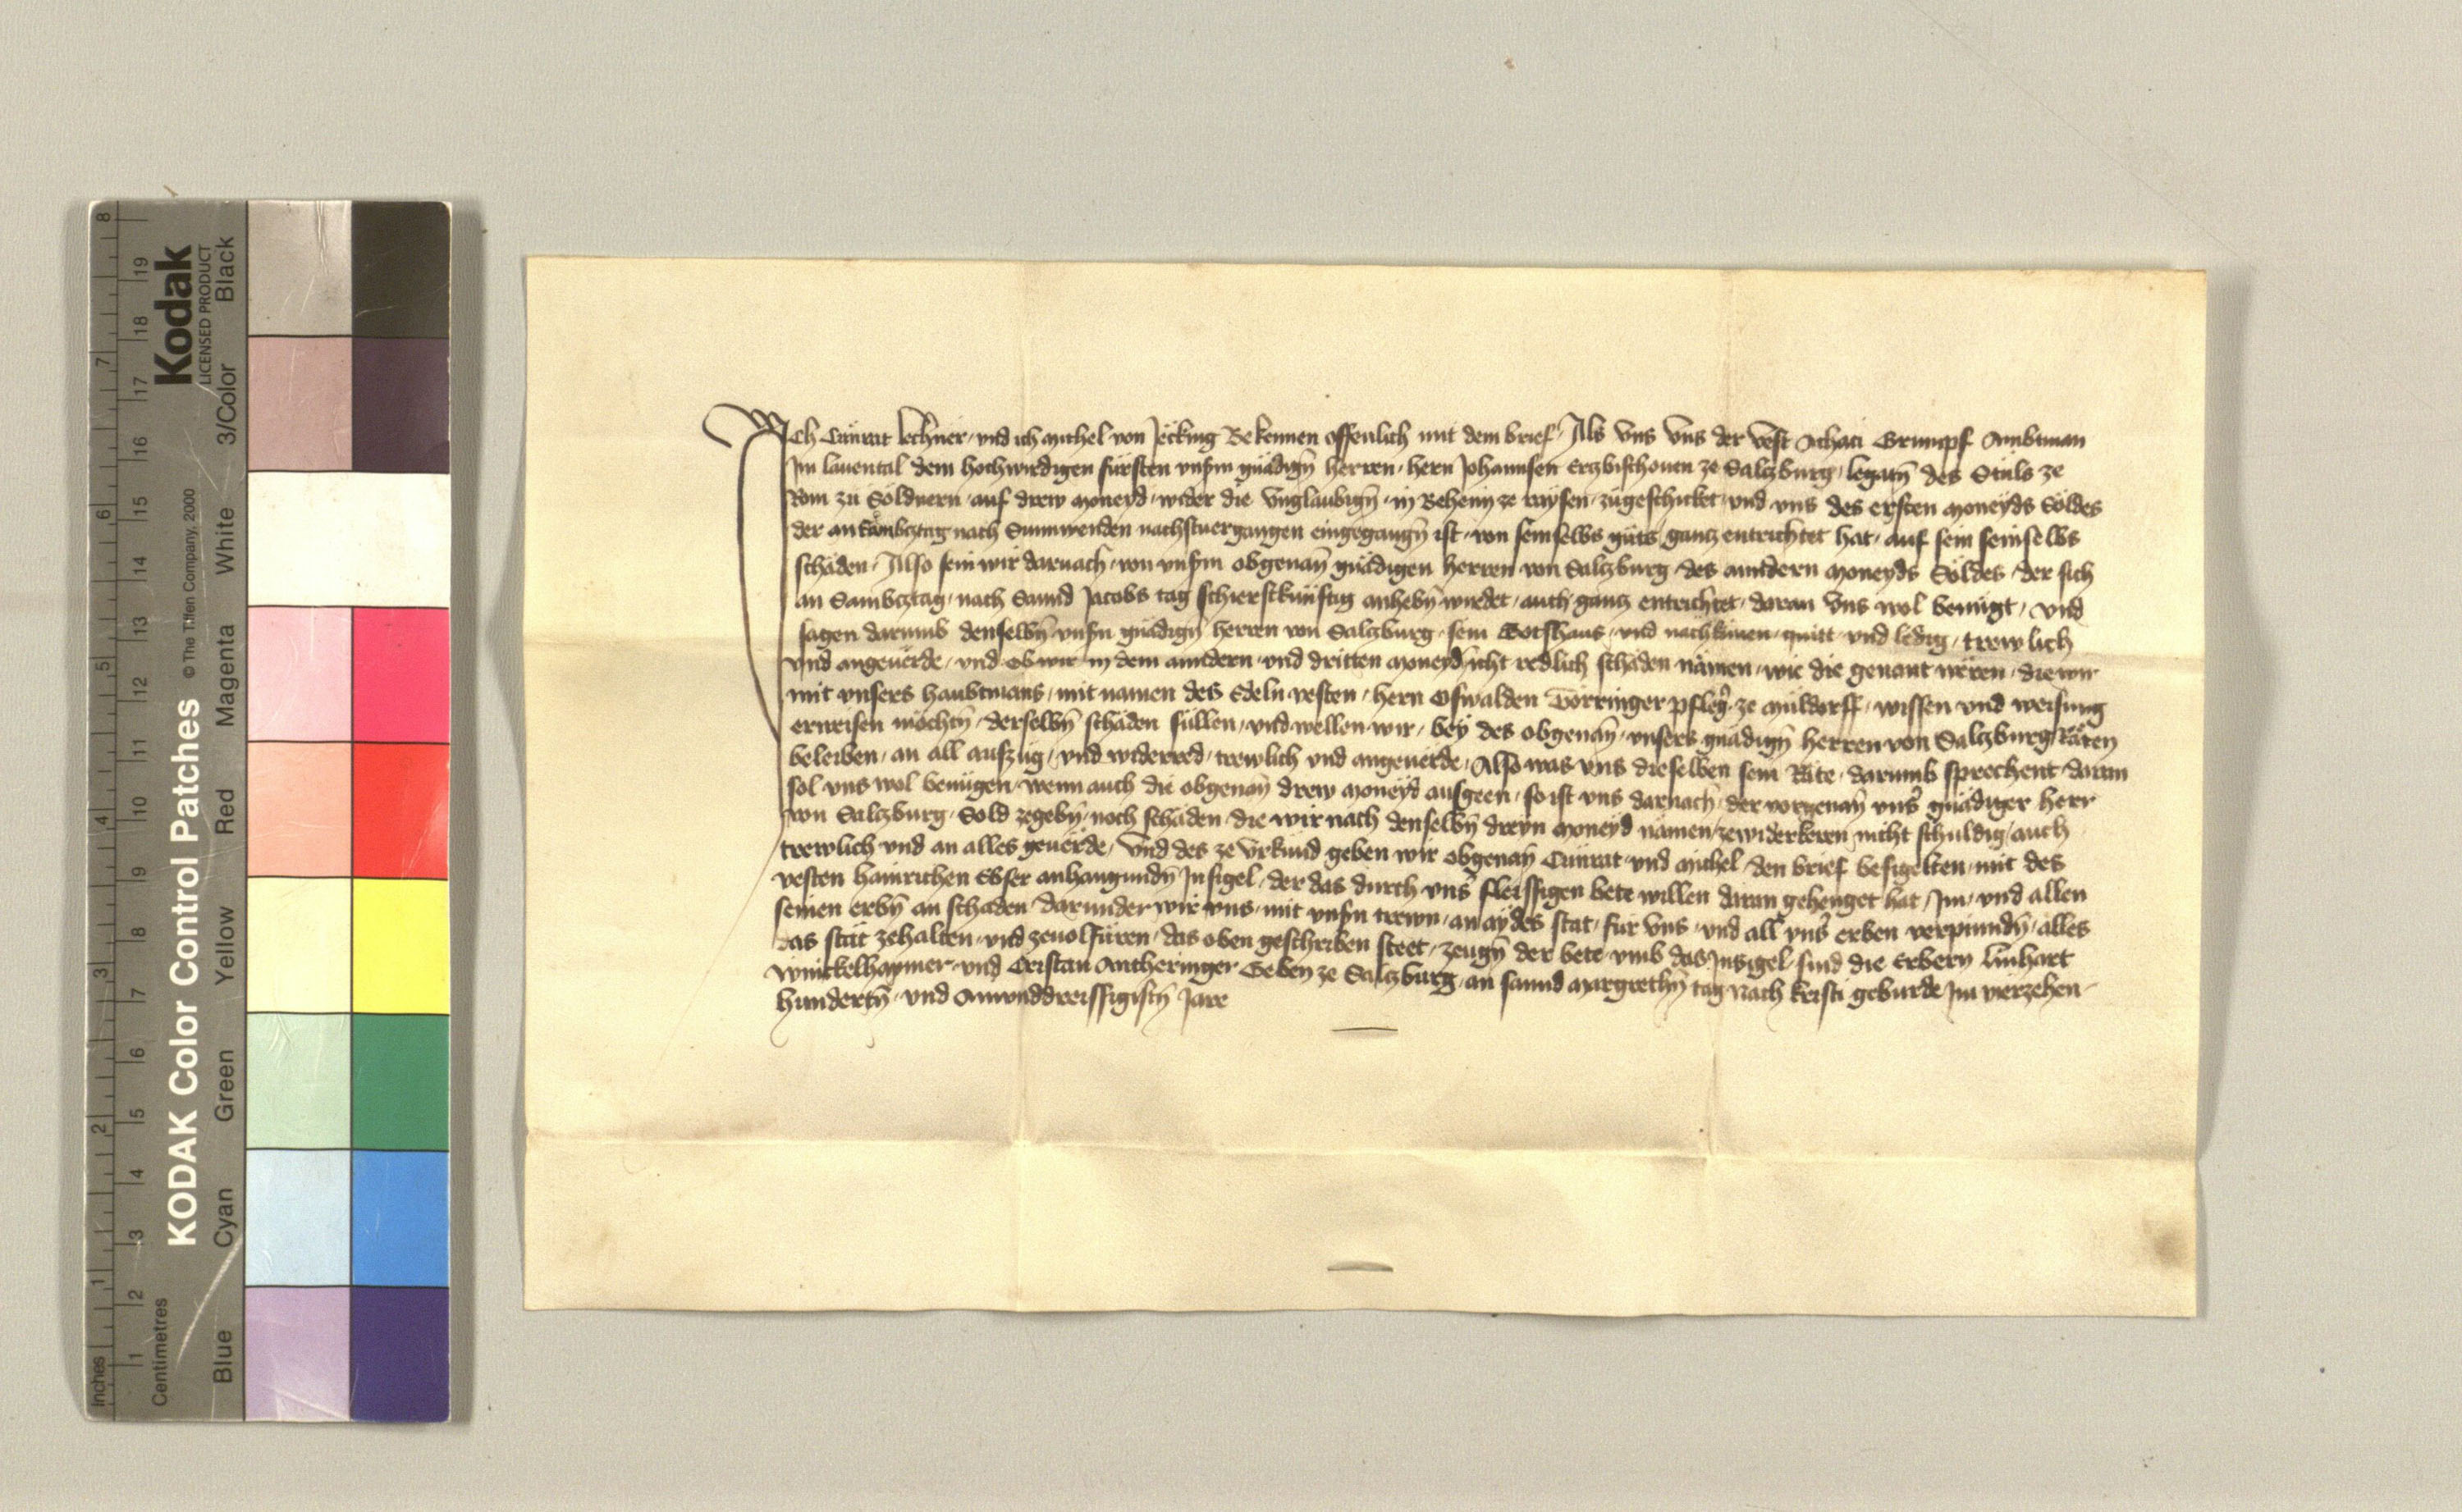 Ich Cunrat lechner, vnd ich michel von Jecking Bekennen offenlich mit dem brief, Als vns vns der vest Achaci Grimpf Ambtman
Im lauental dem hochwirdigen fürsten vnserm gnädigen̄ herren, hern Johannsen Erczbischouen ze Salczburg, legatn̄ des Stuls ze
Rom zu Söldnern, auf drew moneyd, wider die vnglaubign̄, in Behemy ze raysen, zugeschicket, vnd vns des ersten moneyds Soldes
der an Sambcztag nach Sunnwenden nachstuergangen eingegangn̄ ist, von seinselbs guts gancz entrichtet hat, auf sein seinselbs
schäden, Also sein wir darnach, von vnserm obgenan̄ gnädigen herren von Salczburg, des anndern moneyds Soldes, der sich
an Sambcztag, nach Sannd Jacobs tag schierstkünftig anhebn̄ wirdet, auch gancz entrichtet, daran vns wol benügt, vnd
sagen darumb denselbn̄ vnsern gnädign̄ herren von Salczburg, sein Gotshaus, vnd nachkomen, quitt vnd ledig, trewlich
vnd angeuërde, vnd ob wir in dem anndern vnd dritten moneyd icht redlich schäden nämen, wie die genant wëren, die wir
mit vnsers haubtmans, mit namen des Edeln vesten, hern Oswalden Törringer pfleger ze Müldorff, wissen vnd weisung
erweisen möchtn̄, derselbn̄ schäden süllen, vnd wellen wir, bey des obgenan̄, vnsers gnädign̄ herren von Salczburg Räten
beleiben, an all aufzüg, vnd widerred, trewlich vnd angeuërde, Also was vns dieselben sein Räte, darumb sprechent, daran
sol vns wol benügen, wenn auch die obgenan̄ drew moneyd ausgeen, so ist vns darnach, der vorgenan̄ vnser gnädiger herr
von Salczburg, Sold zegebn̄, noch schäden, die wir nach denselbn̄ dreyn moneyd nämen, zewiderkeren nicht schuldig, auch
trewlich vnd an alles geuërde, Vnd des ze vrkund geben wir obgenan̄ Cunrat vnd michel, den brief besigelten, mit des
vesten hainrichen Ebser anhangundn̄ Insigel, der das durch vnser fleissigen bete willen daran gehenget hat, Im, vnd allen
seinen erbn̄ an schaden, darunder wir vns, mit vnsern trewn, an aydes stat, für vns, vnd all vnser erben verpinndn̄, alles
das stät zehalten, vnd zeuolfüren, das oben geschriben steet, zeugn̄ der bete, vmb das Insigel sind die Erbern linhart
Winckelhaymer vnd Cristan Antheringer Geben ze Salczburg, an sannd margrethn̄ tag Nach kristi geburde, Im vierzehen-
hundertn̄, vnd Ainunddreissigistn̄ Jare
KODAK Color Control Patches © The Tiffen Company, 2000
Kodak
LICENSED PRODUCT
Blue Cyan Green Yellow Red Magenta White 3/Color Black
Inches 1 2 3 4 5 6 7 8
Centimetres 1 2 3 4 5 6 7 8 9 10 11 12 13 14 15 16 17 18 19